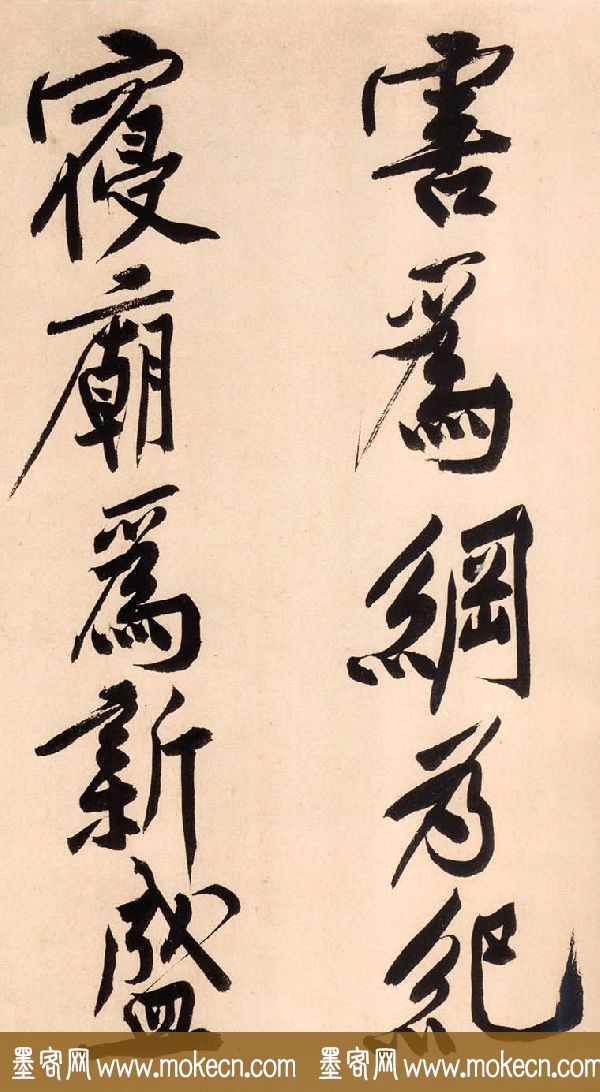 害爲綱为紀
寢廟爲新盛
墨客网 www.mokecn.com 墨客网 www.mokecn.com